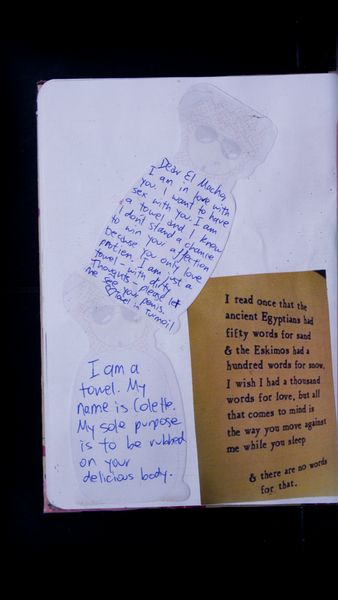 Dear El Macho,
I am in love with
you. I want to have
sex with you. I am
a towel and I know
I don't stand a chance
to win your affection
because you only love
protien. I am just a
towel - with dirty
Thoughts - please let
me see your penis.
Towel in Turmoil
I am a
towel. My
name is Colette.
My sole purpose
is to be rubbed
on your
delicious body.
I read once that the
ancient Egyptians had
fifty words for sand
& the Eskimos had a
hundred words for snow.
I wish I had a thousand
words for love, but all
that comes to mind is
the way you move against
me while you sleep
& there are no words
for that.